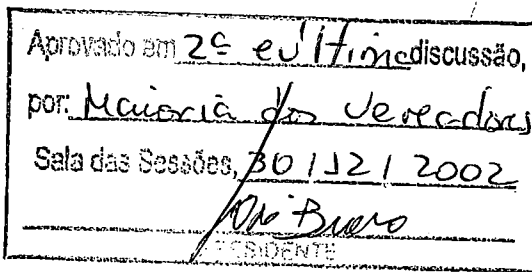 Aprovado em 2ª e última discussão,
por: Maioria dos Vereadores
Sala das Sessões, 30 / 12 / 2002
PRESIDENTE